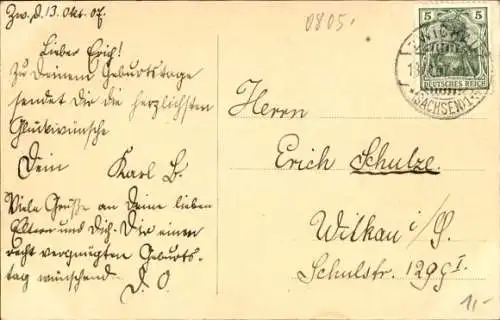 Zw. d. 13. Okt. 07.
Lieber Erich!
Zu Deinem Geburtstage
sendet Dir die herzlichsten
Glückwünsche
Dein Karl B.
Viele Grüße an Deine lieben
Eltern und Dich. Dir einen
recht vergnügten Geburts-
tag wünschend
D. O.
0805.
5 5
DEUTSCHES REICH
(SACHSEN)
Herrn
Erich Schulze.
Wilkau i/S.
Schulstr. 129G I.
1,-